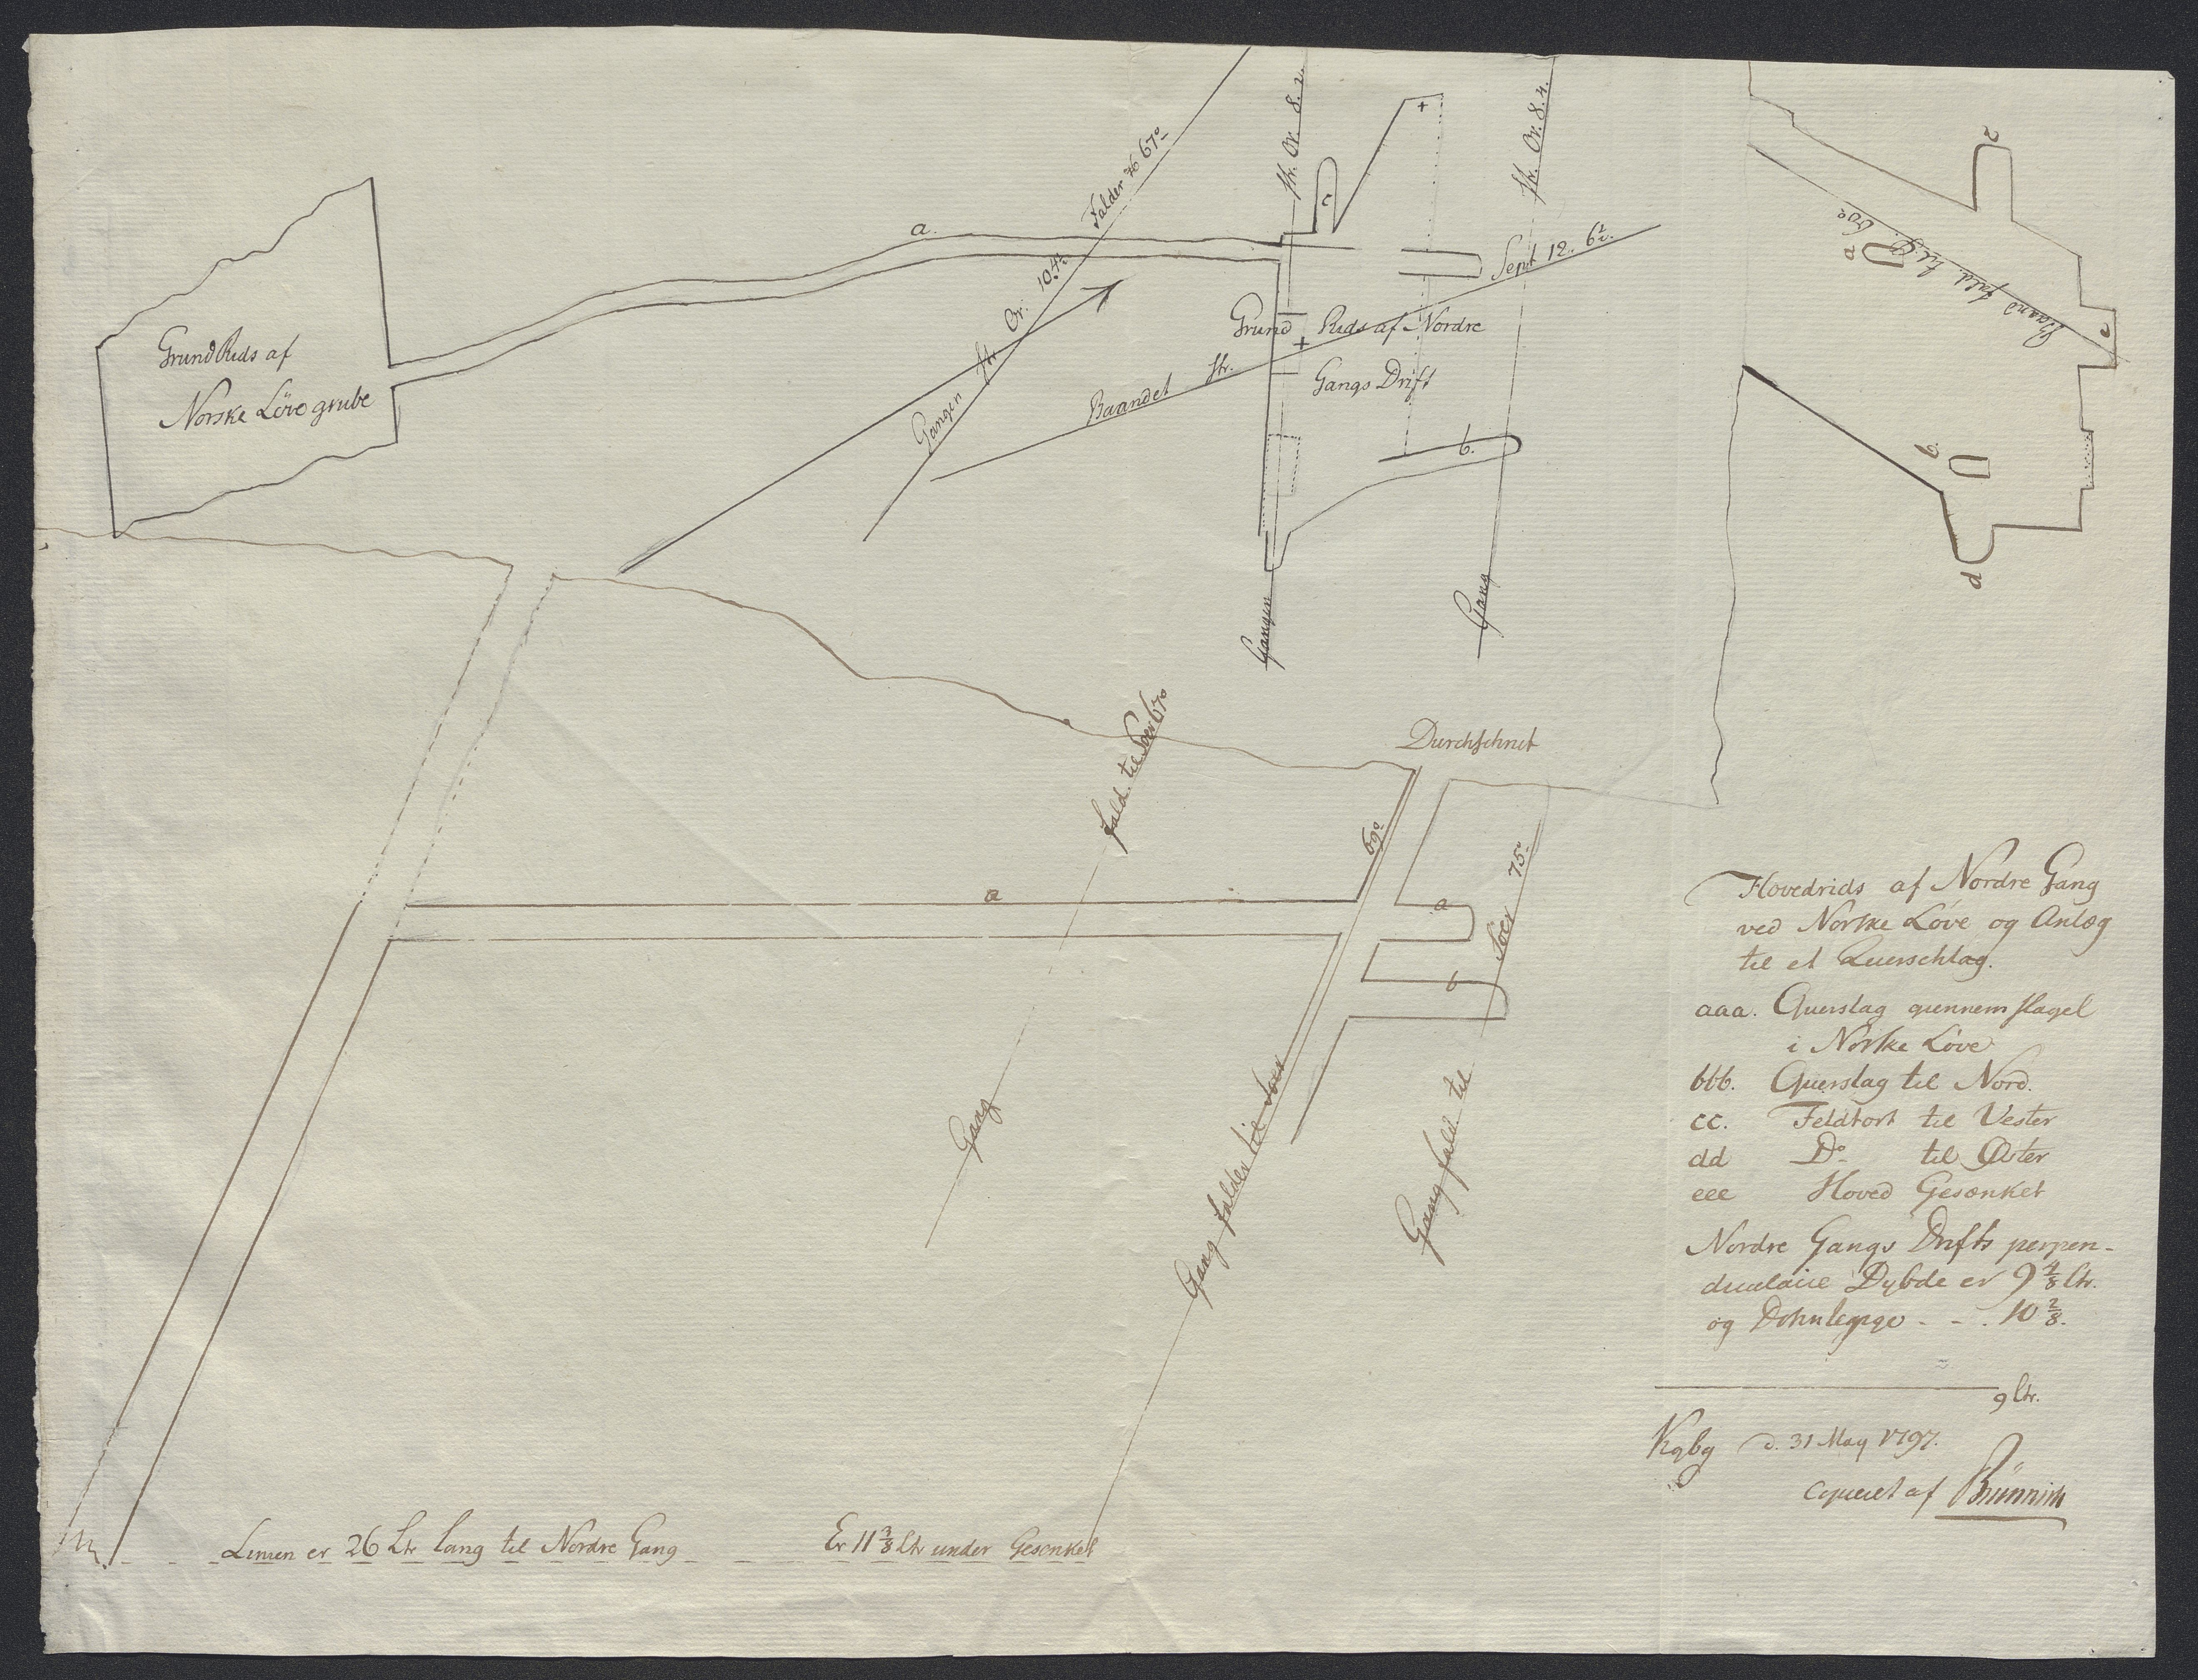 Grund Rids af
Norske Löve grube
a.
Gangen str. Or. 10.4½ Falder 76 67°
Baandet str. Sept 12. 6½.
Gangen str. Or. 8. 2.
c
+
Gang str. Or. 8. 4.
Grund Rids af Nordre
Gangs Drift
+
b.
c
a
Baand fald. til
60°
e
b.
d
Durchschnit
a
Gang fald. til Soer 67°
Gang falder til Soer 69°
Gang fald til Soer 75°
a
b
Hovedrids af Nordre Gang
ved Norske Löve og Anlæg
til et Querschlag.
aaa. Querslag giennemslagel
i Norske Löve
bbb. Querslag til Nord.
cc. Feldtort til Vester
dd Do til Øster
eee Hoved Gesænket
Nordre Gangs Drifts perpen-
diculaire Dybde er 9 4/8 Ltr.
og Dohnlegige - - . 10 2/8.
9 Ltr.
Kgbg d. 31 May 1797.
copieret af Brünnich
Linien er 26 Ltr lang til Nordre Gang Er 11 3/8 Ltr under Gesenket